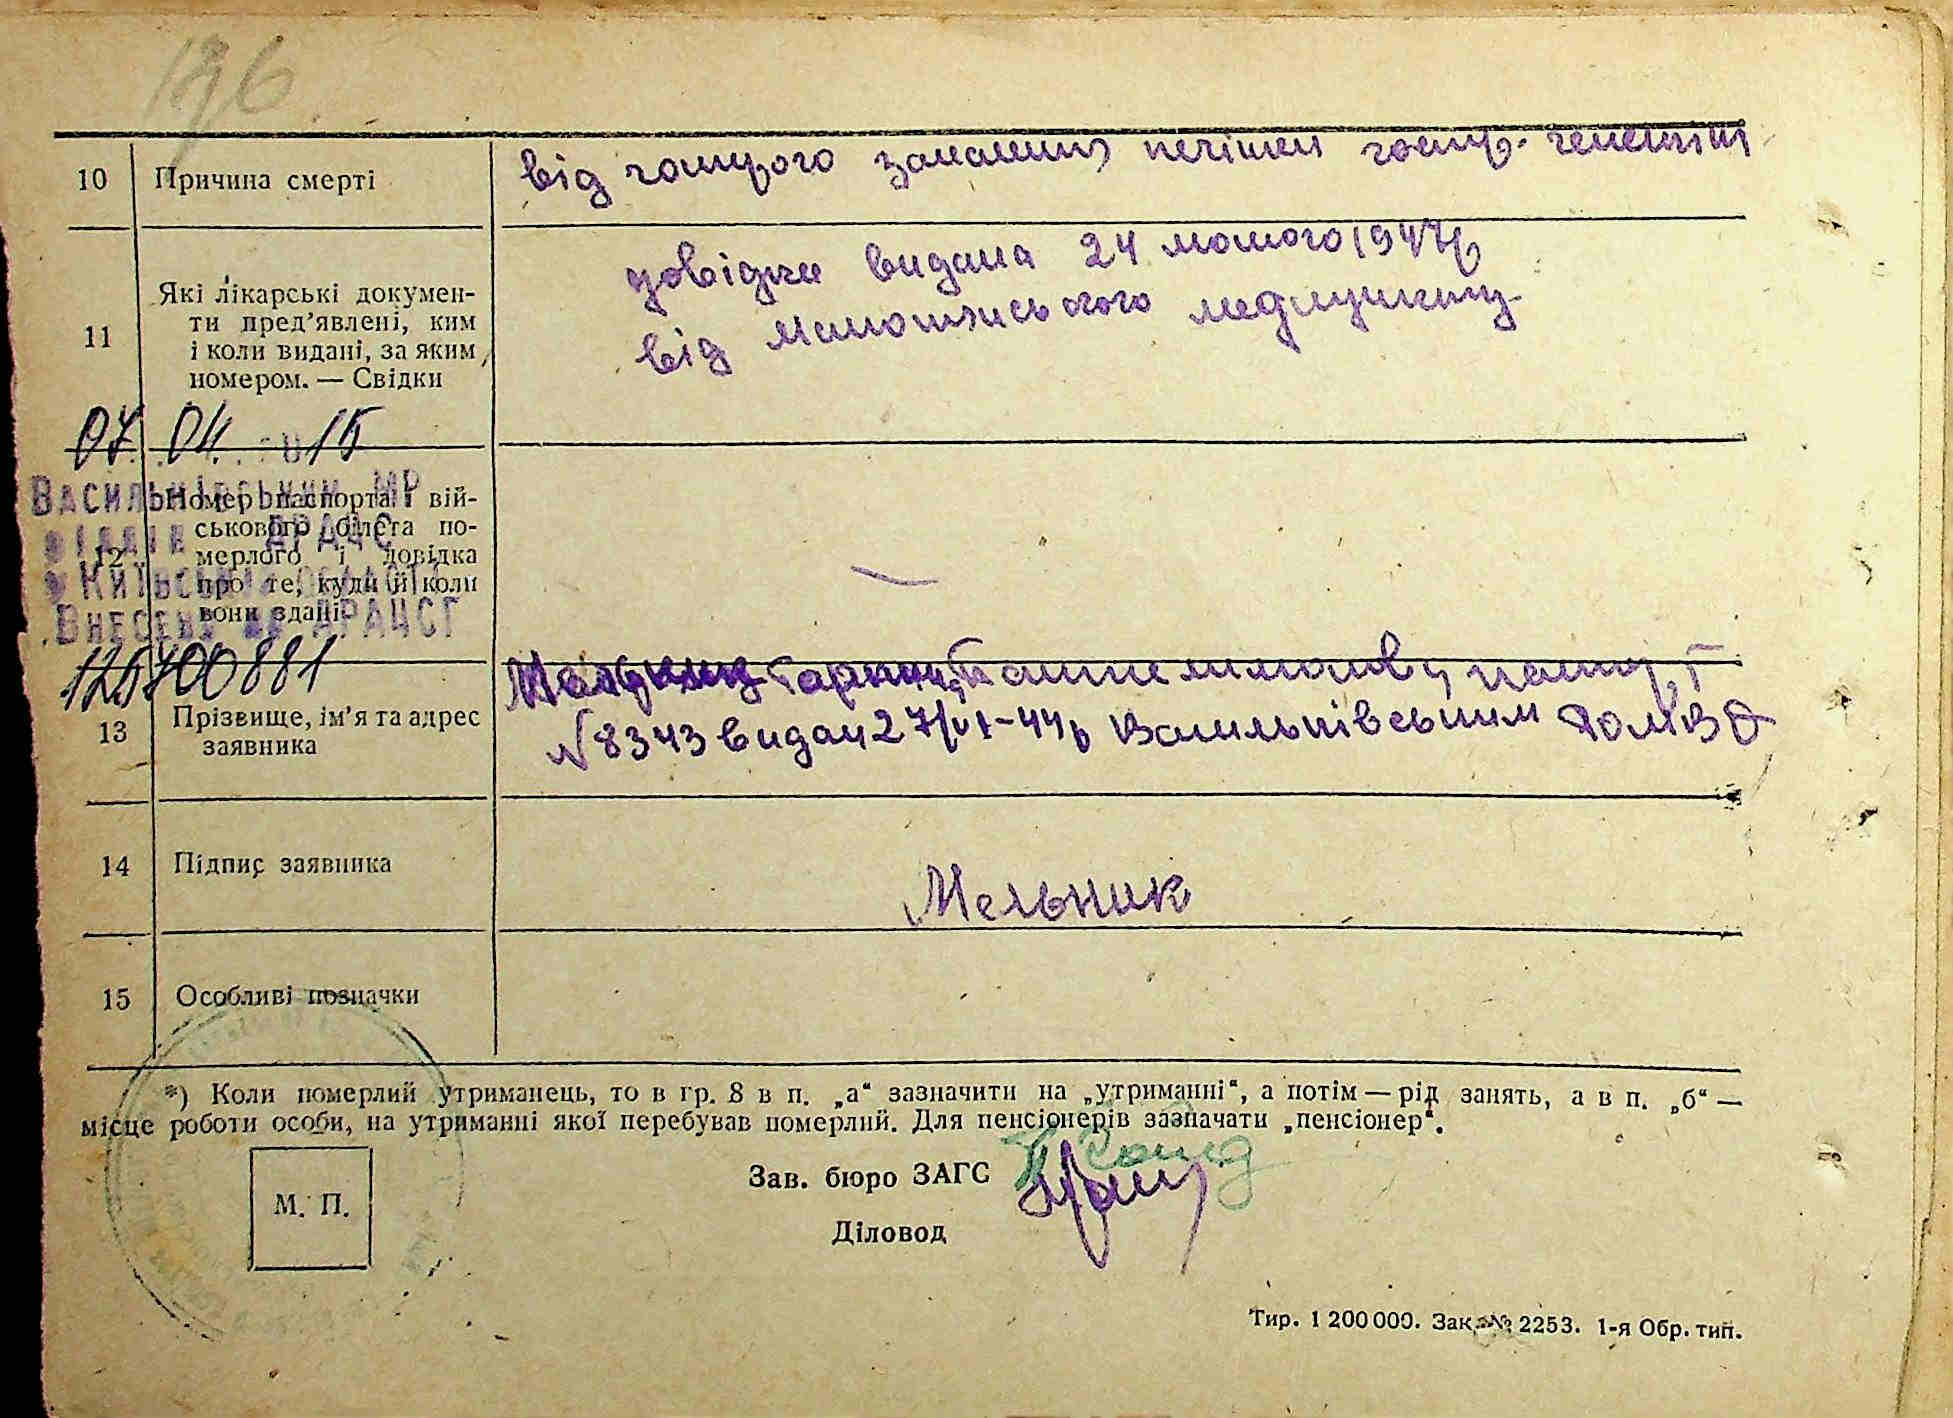 196
10 Причина смерті від гострого запалення печінки гостр. гепатит
11 Які лікарські докумен-
ти пред’явлені, ким
і коли видані, за яким
номером. — Свідки
довідка видана 24 лютого 1947р
від медпункту
07 04 15
Васильківський МР
відділ ДРАЦС
Київській області
Внесено до ДРАЦСГ
12 Номер паспорта і вій-
ськового білета по-
мерлого і довідка
про те, куди й коли
вони здані
—
125700881
13 Прізвище, ім’я та адрес
заявника
паспорт
№ 8343 видан 27/VI-44р Васильківським РОМВД
14 Підпис заявника Мельник
15 Особливі позначки
*) Коли померлий утриманець, то в гр. 8 в п. „а“ зазначити на „утриманні“, а потім — рід занять, а в п. „б“ —
місце роботи особи, на утриманні якої перебував померлий. Для пенсіонерів зазначати „пенсіонер“.
М. П.
Зав. бюро ЗАГС
Діловод
Тир. 1 200 000. Зак. № 2253. 1-я Обр. тип.